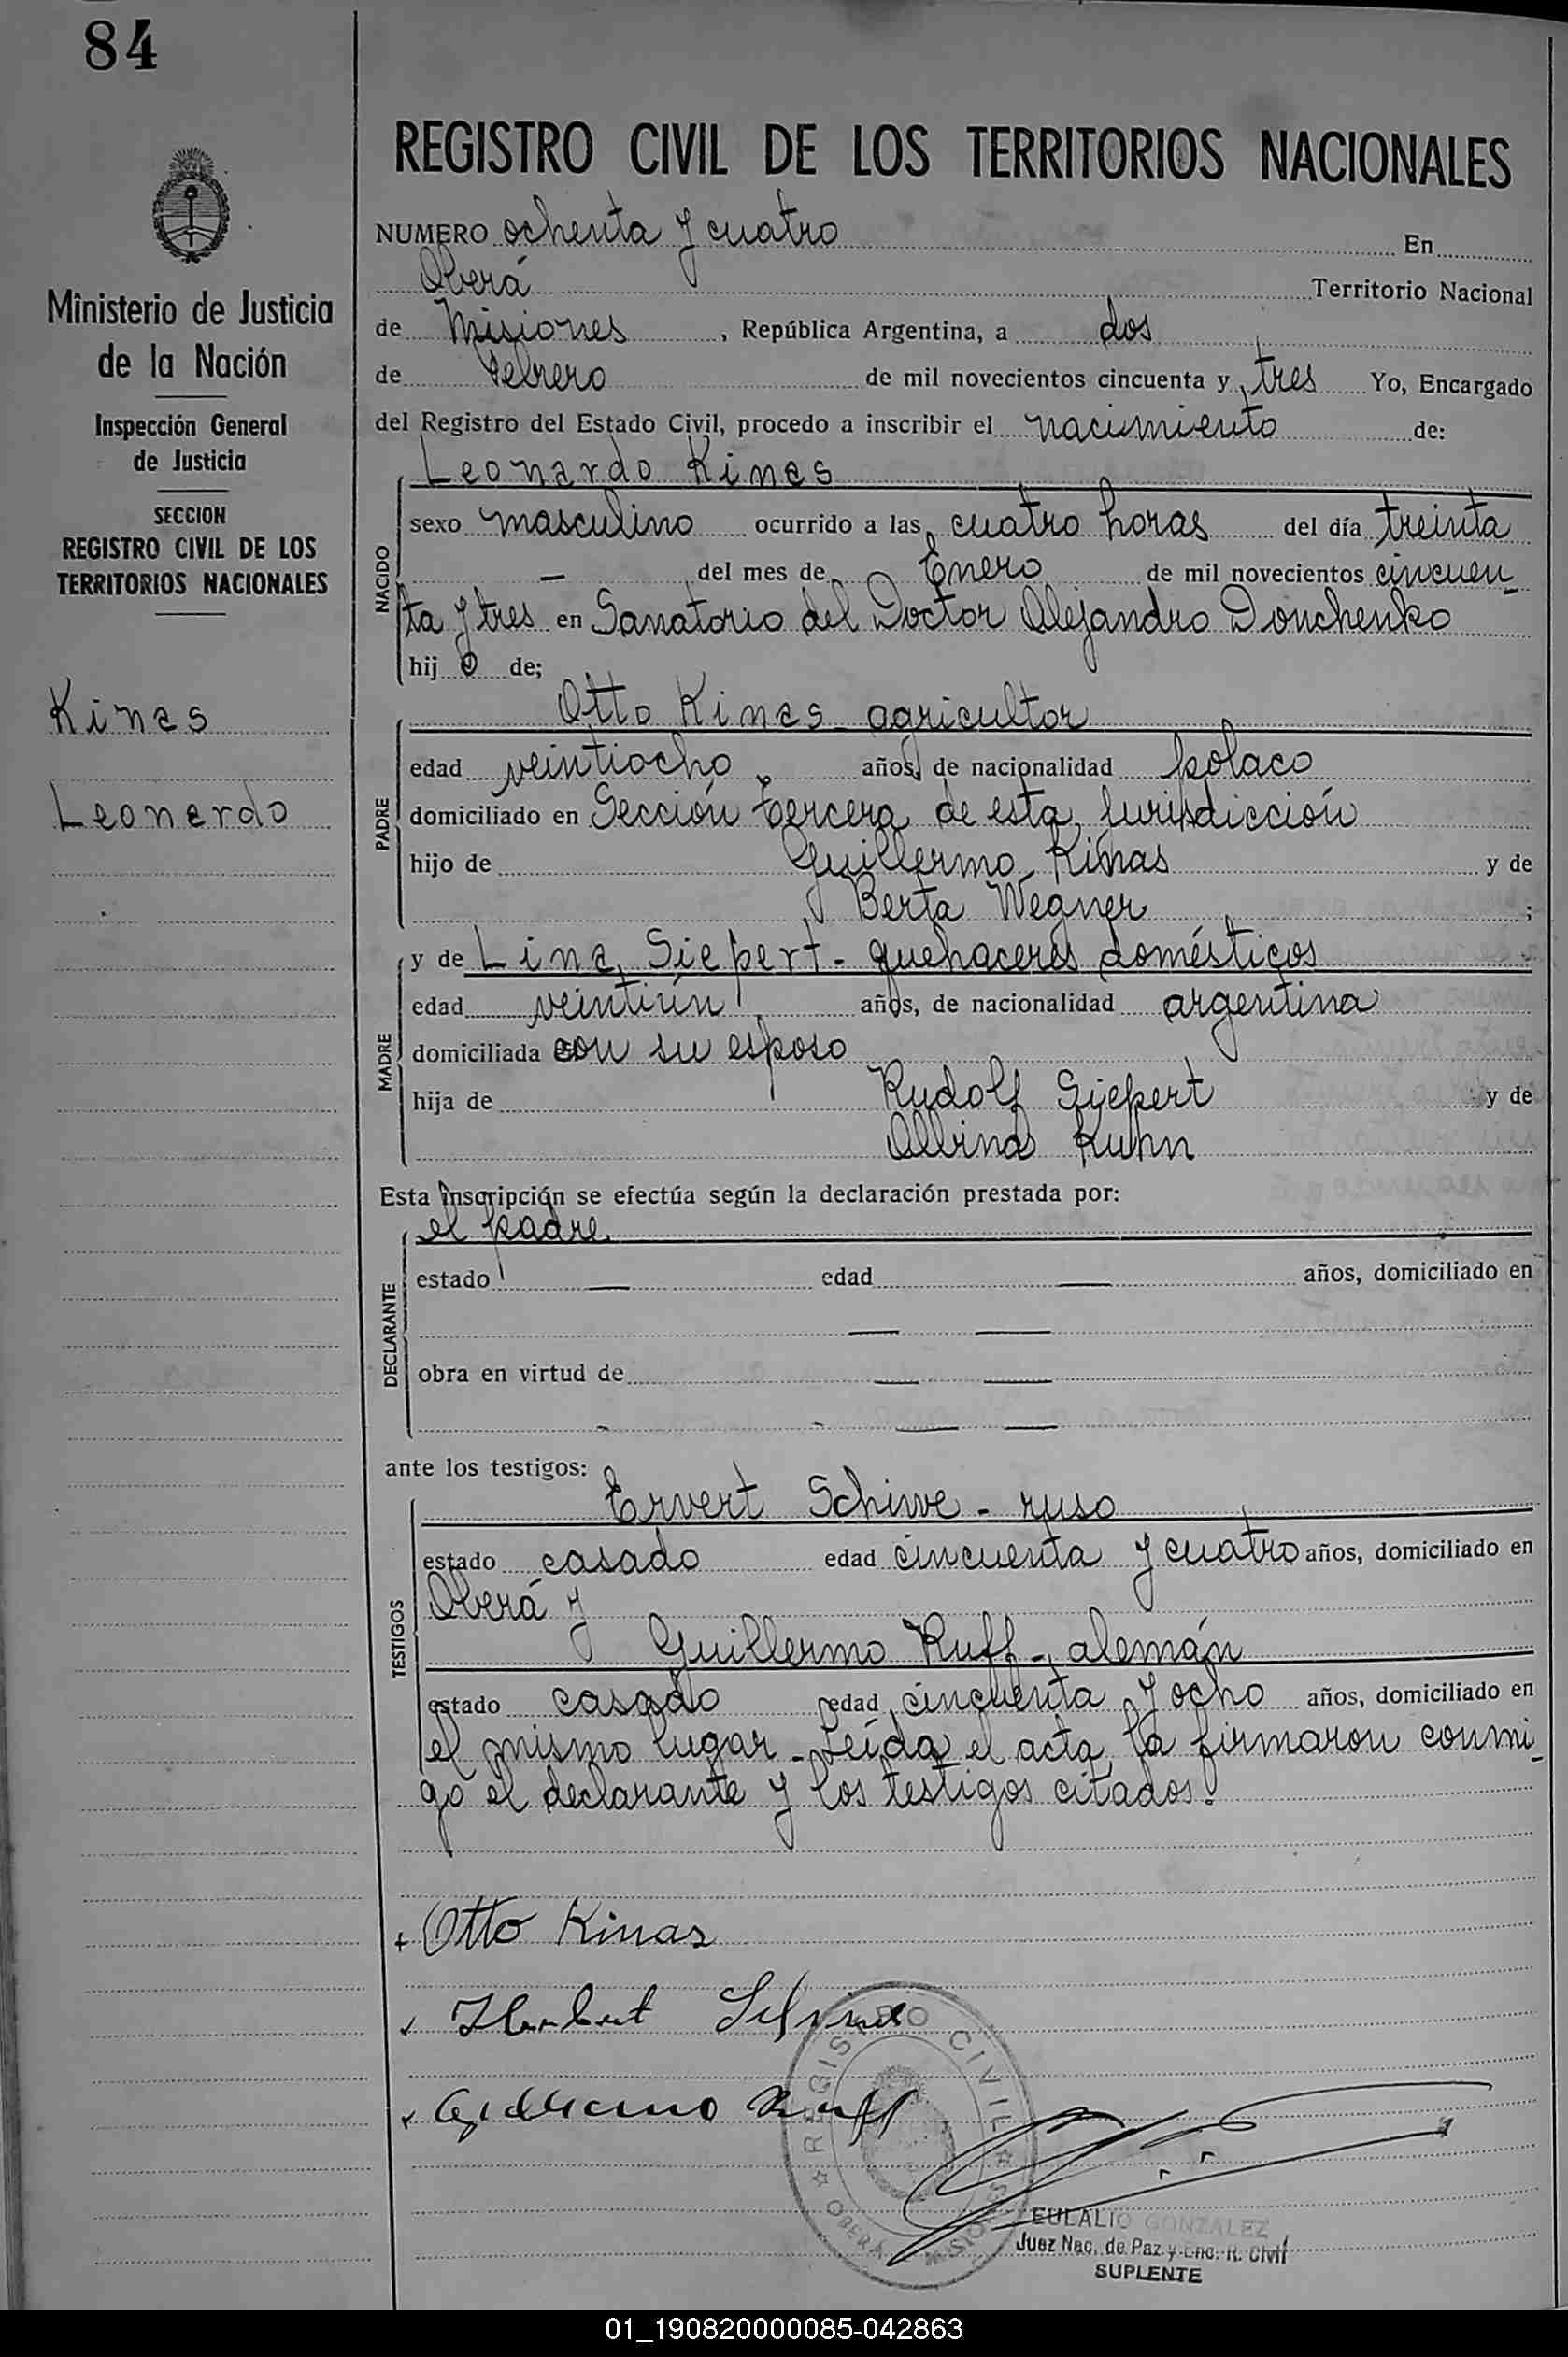 84
Ministerio de Justicia
de la Nación
Inspección General
de Justicia
SECCION
REGISTRO CIVIL DE LOS
TERRITORIOS NACIONALES
Kinas
Leonardo
REGISTRO CIVIL DE LOS TERRITORIOS NACIONALES
NUMERO ochenta y cuatro En
Oberá Territorio Nacional
de Misiones, República Argentina, a dos
de Febrero de mil novecientos cincuenta y tres Yo, Encargado
del Registro del Estado Civil, procedo a inscribir el nacimiento de:
Leonardo Kinas
NACIDO
sexo masculino ocurrido a las cuatro horas del día treinta
— del mes de Enero de mil novecientos cincuen-
ta y tres en Sanatorio del Doctor Alejandro Donchenko
hijo de;
Otto Kinas agricultor
PADRE
edad veintiocho años, de nacionalidad polaco
domiciliado en Sección tercera de esta Jurisdicción
hijo de Guillermo Kinas y de
Berta Wegner;
y de Lina Siepert - quehaceres domésticos
MADRE
edad veintiún años, de nacionalidad argentina
domiciliada con su esposo
hija de Rudolf Siepert y de
Albina Kuhn
Esta inscripción se efectúa según la declaración prestada por:
el padre.
DECLARANTE
estado — edad — años, domiciliado en
— —
obra en virtud de — —
— —
ante los testigos:
Ervert Schiwe - ruso
TESTIGOS
estado casado edad cincuenta y cuatro años, domiciliado en
Oberá y
Guillermo Ruff - alemán
estado casado edad cincuenta y ocho años, domiciliado en
el mismo lugar - Leída el acta, la firmaron conmi-
go el declarante y los testigos citados.
Otto Kinas
Herbert
Ruff
REGISTRO CIVIL
OBERA MISIONES
EULALIO GONZALEZ
Juez Nac. de Paz y Enc. R. Civil
SUPLENTE
01_190820000085-042863